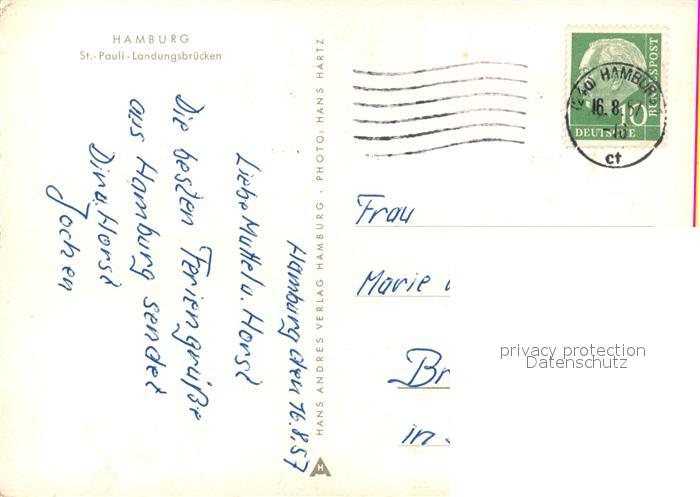 HAMBURG
St.-Pauli-Landungsbrücken
Hamburg den 16.8.57
Liebe Muttel u. Horst
Die besten Feriengrüße
aus Hamburg sendet
Horst
Jochen
HANS ANDRES VERLAG HAMBURG · PHOTO: HANS HARTZ
HA
10
DEUTSCHE
BUNDESPOST
(24a) HAMBURG
16. 8. 57
ct
Frau
Marie
Br
in
privacy protection
Datenschutz